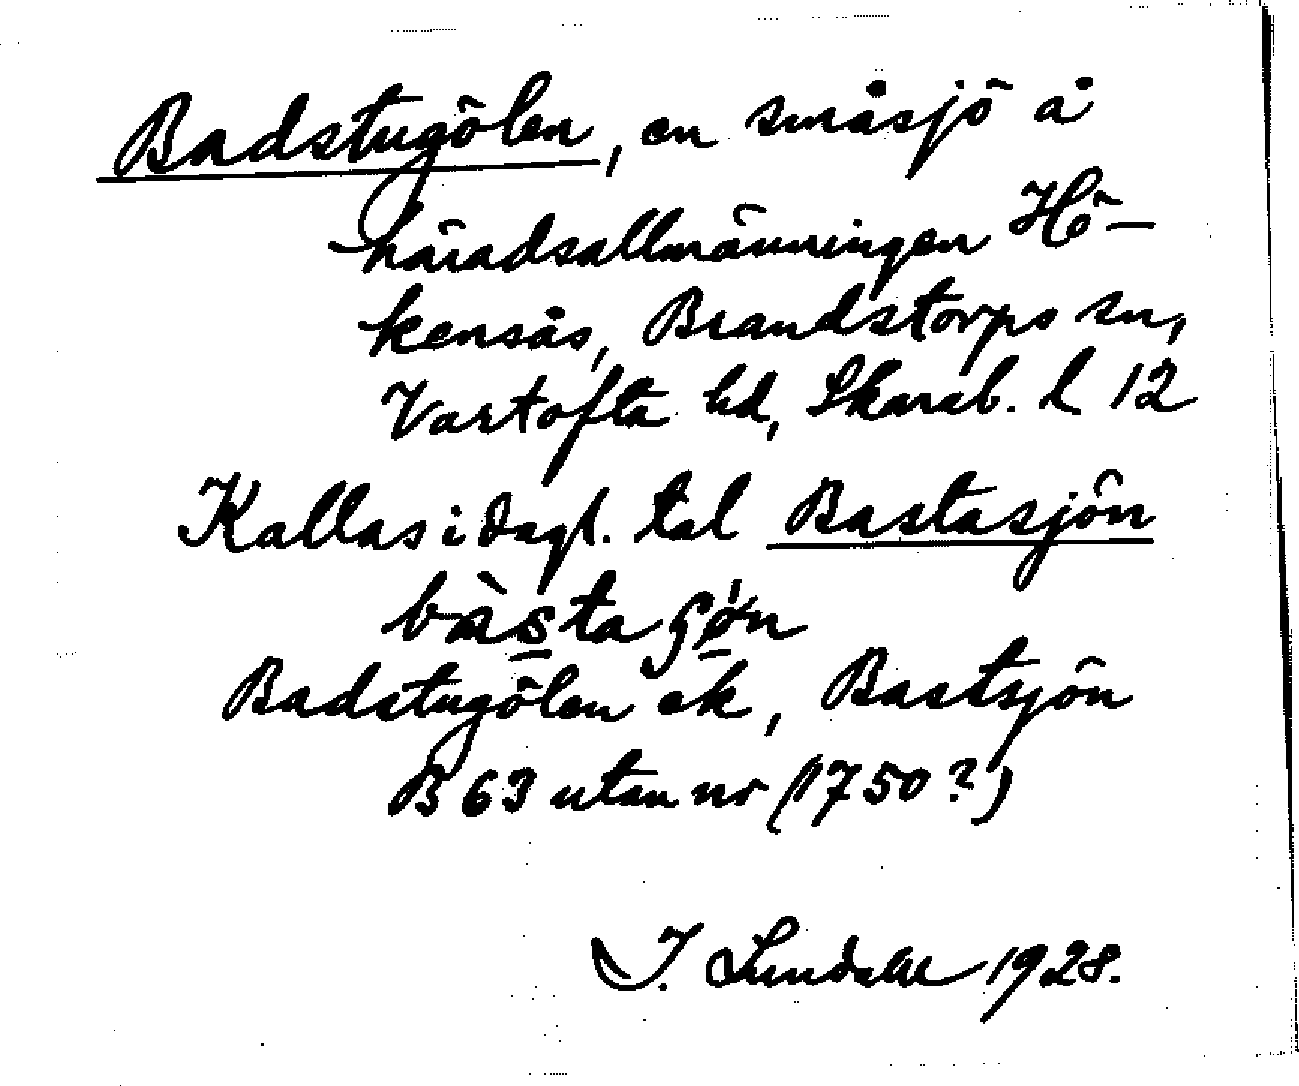 Badstugölen, en småsjö å
häradsallmänningen Hö-
kensås, Brandstorps sn,
Vartofta hd, Skarab. l 12
Kallas i dagl. tal Bastasjön
bàsta
Badstugölen ek, Bastsjön
B 63 utan nr (1750?)
J. Lundahl 1928.